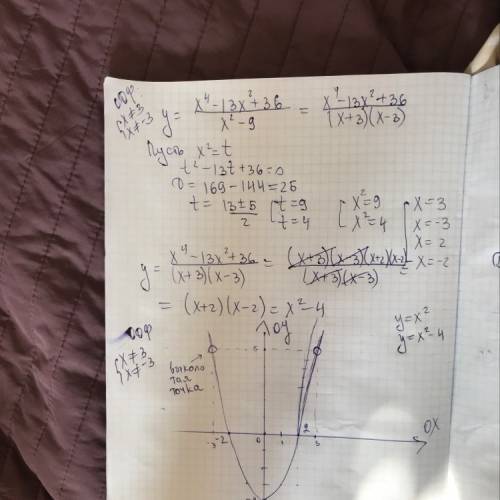 ООФ
{x≠3
{x≠-3
y = (x⁴-13x²+36)/(x²-9) = (x⁴-13x²+36)/((x+3)(x-3))
Пусть x²=t
t²-13t+36=0
D=169-144=25
t = (13±5)/2 [t=9 [x²=9 [x=3
[t=4 [x²=4 [x=-3
[x=2
[x=-2
y = (x⁴-13x²+36)/((x+3)(x-3)) = ((x+3)(x-3)(x+2)(x-2))/((x+3)(x-3)) =
= (x+2)(x-2) = x²-4
ООФ
{x≠3
{x≠-3
y=x²
y=x²-4
выколо
тая
точка
OY
5
-3 -2 0 1 2 3
OX
-4